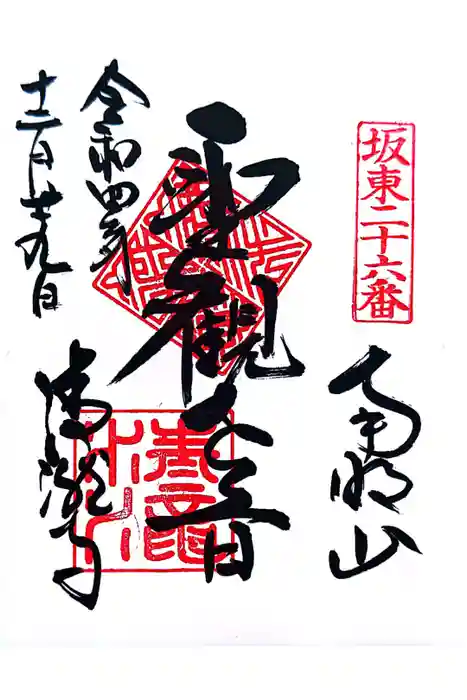 坂東二十六番
南明山
聖観音
令和四年
十二月廿九日
清瀧寺